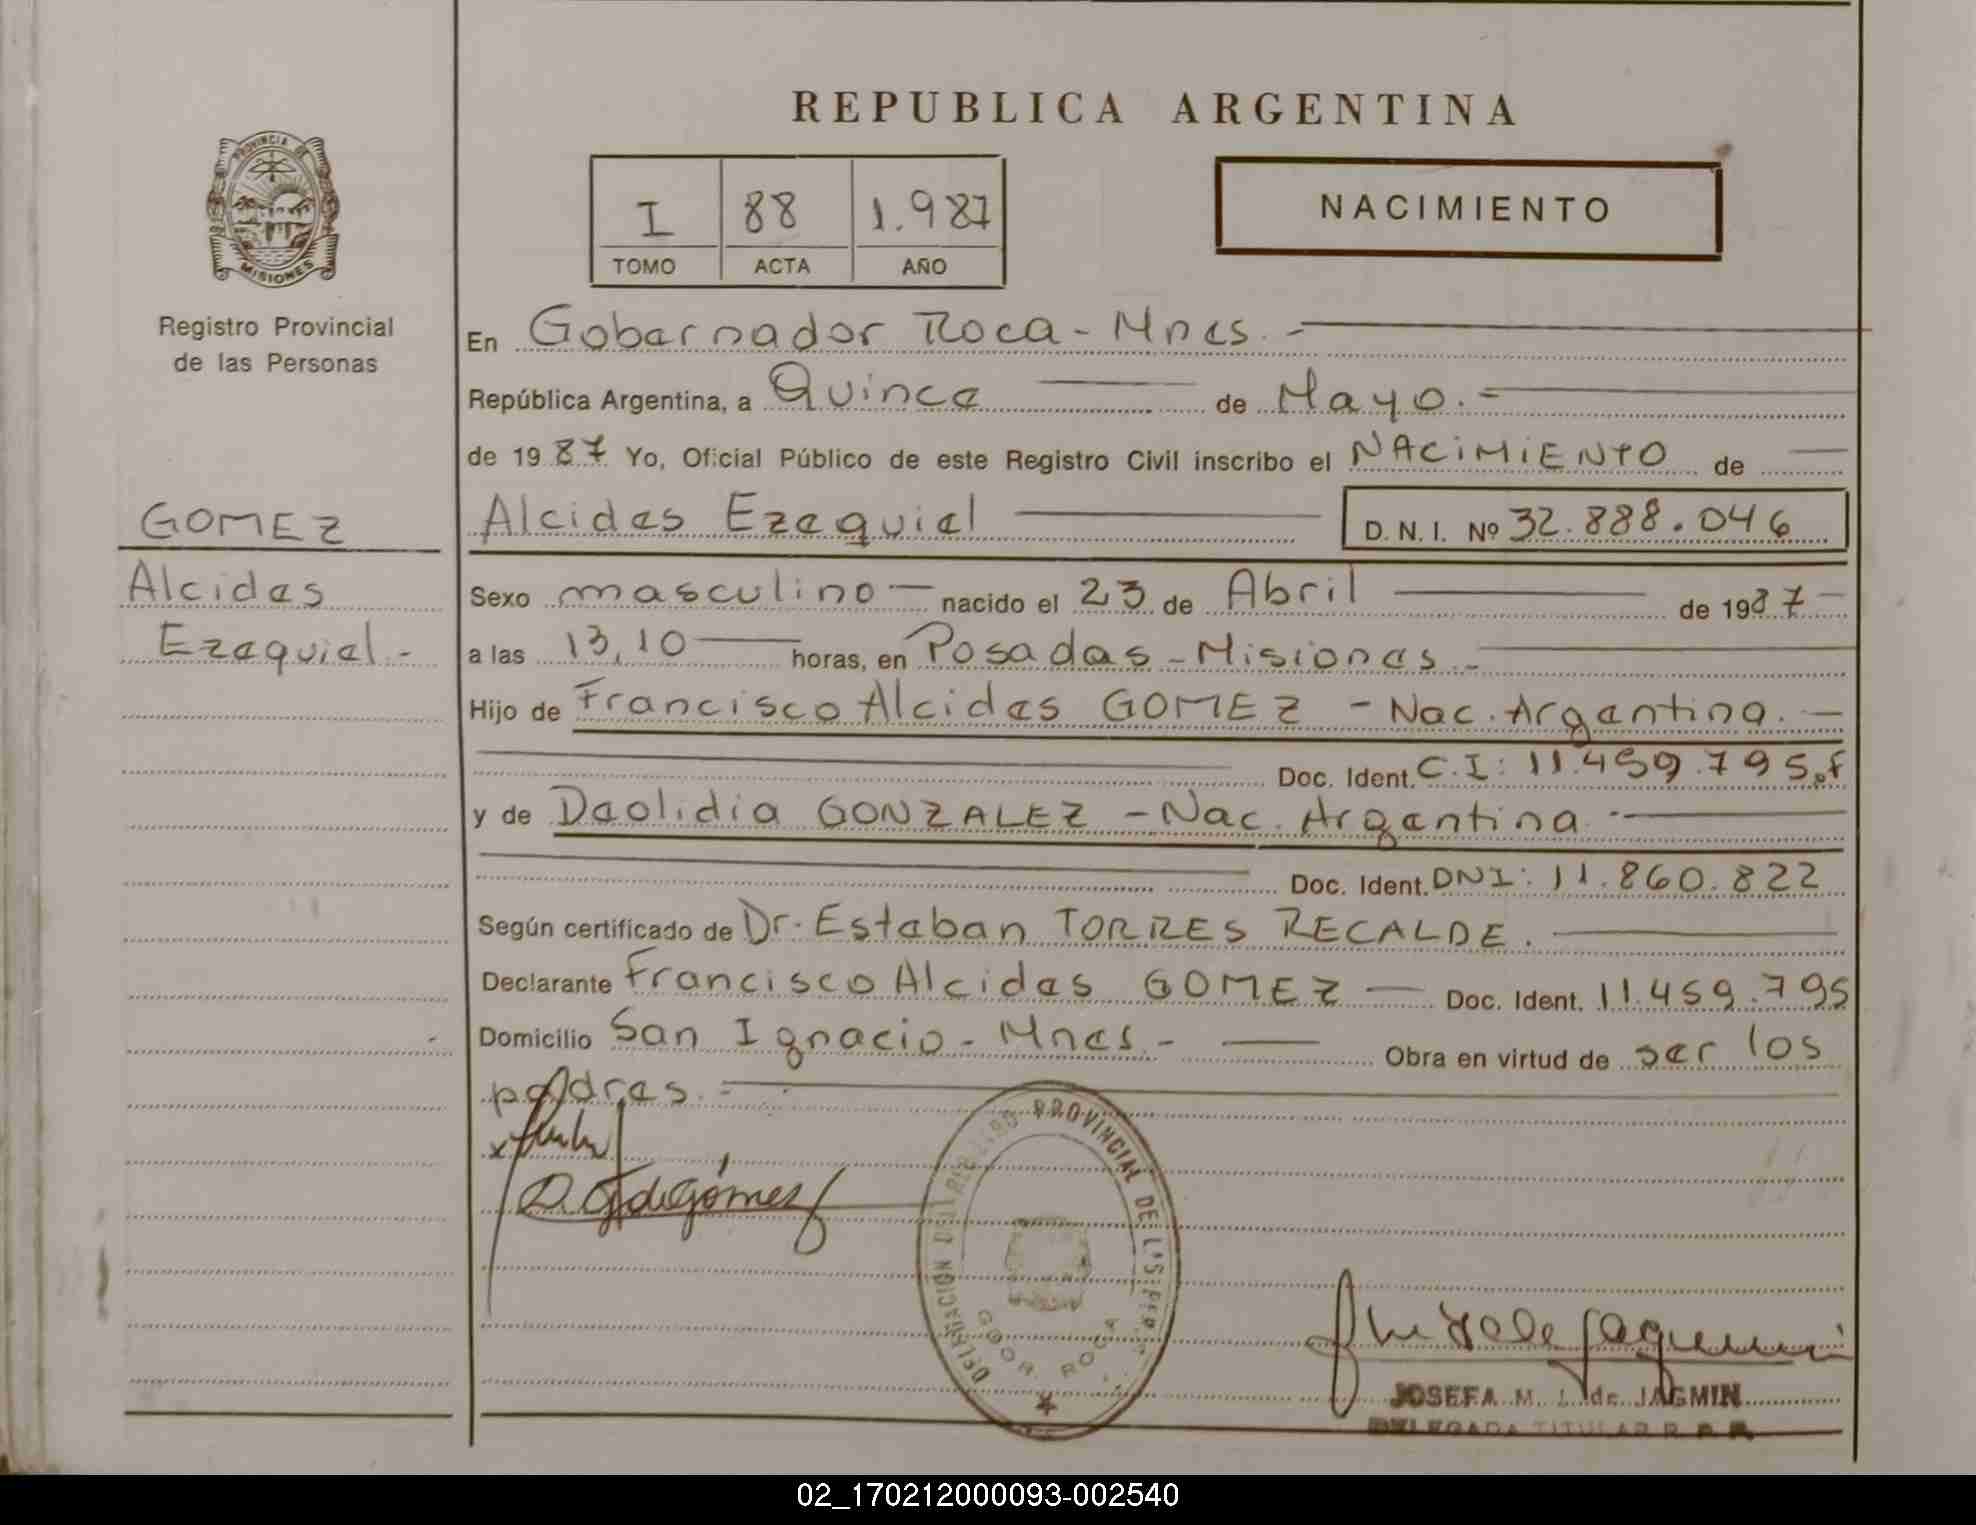 REPUBLICA ARGENTINA
PROVINCIA DE
MISIONES
Registro Provincial
de las Personas
I 88 1.987
TOMO ACTA AÑO
NACIMIENTO
En Gobernador Roca - Mnes. -
República Argentina, a Quince de Mayo. -
de 19 87 Yo, Oficial Público de este Registro Civil inscribo el NACIMIENTO de
GOMEZ
Alcides
Ezequiel. -
Alcides Ezequiel
D. N. I. Nº 32.888.046
Sexo masculino - nacido el 23 de Abril de 1987
a las 13,10 horas, en Posadas - Misiones. -
Hijo de Francisco Alcides GOMEZ - Nac. Argentina. -
Doc. Ident. C.I: 11.459.795.f
y de Deolidia GONZALEZ - Nac. Argentina. -
Doc. Ident. DNI: 11.860.822
Según certificado de Dr. Esteban TORRES RECALDE.
Declarante Francisco Alcides GOMEZ - Doc. Ident. 11.459.795
Domicilio San Ignacio - Mnes. - Obra en virtud de ser los
padres. -
D. G. de Gómez
PROVINCIAL DE
GDOR ROCA
JOSEFA M. L. de JAGMIN
DELEGADA TITULAR R. P. P.
02_170212000093-002540